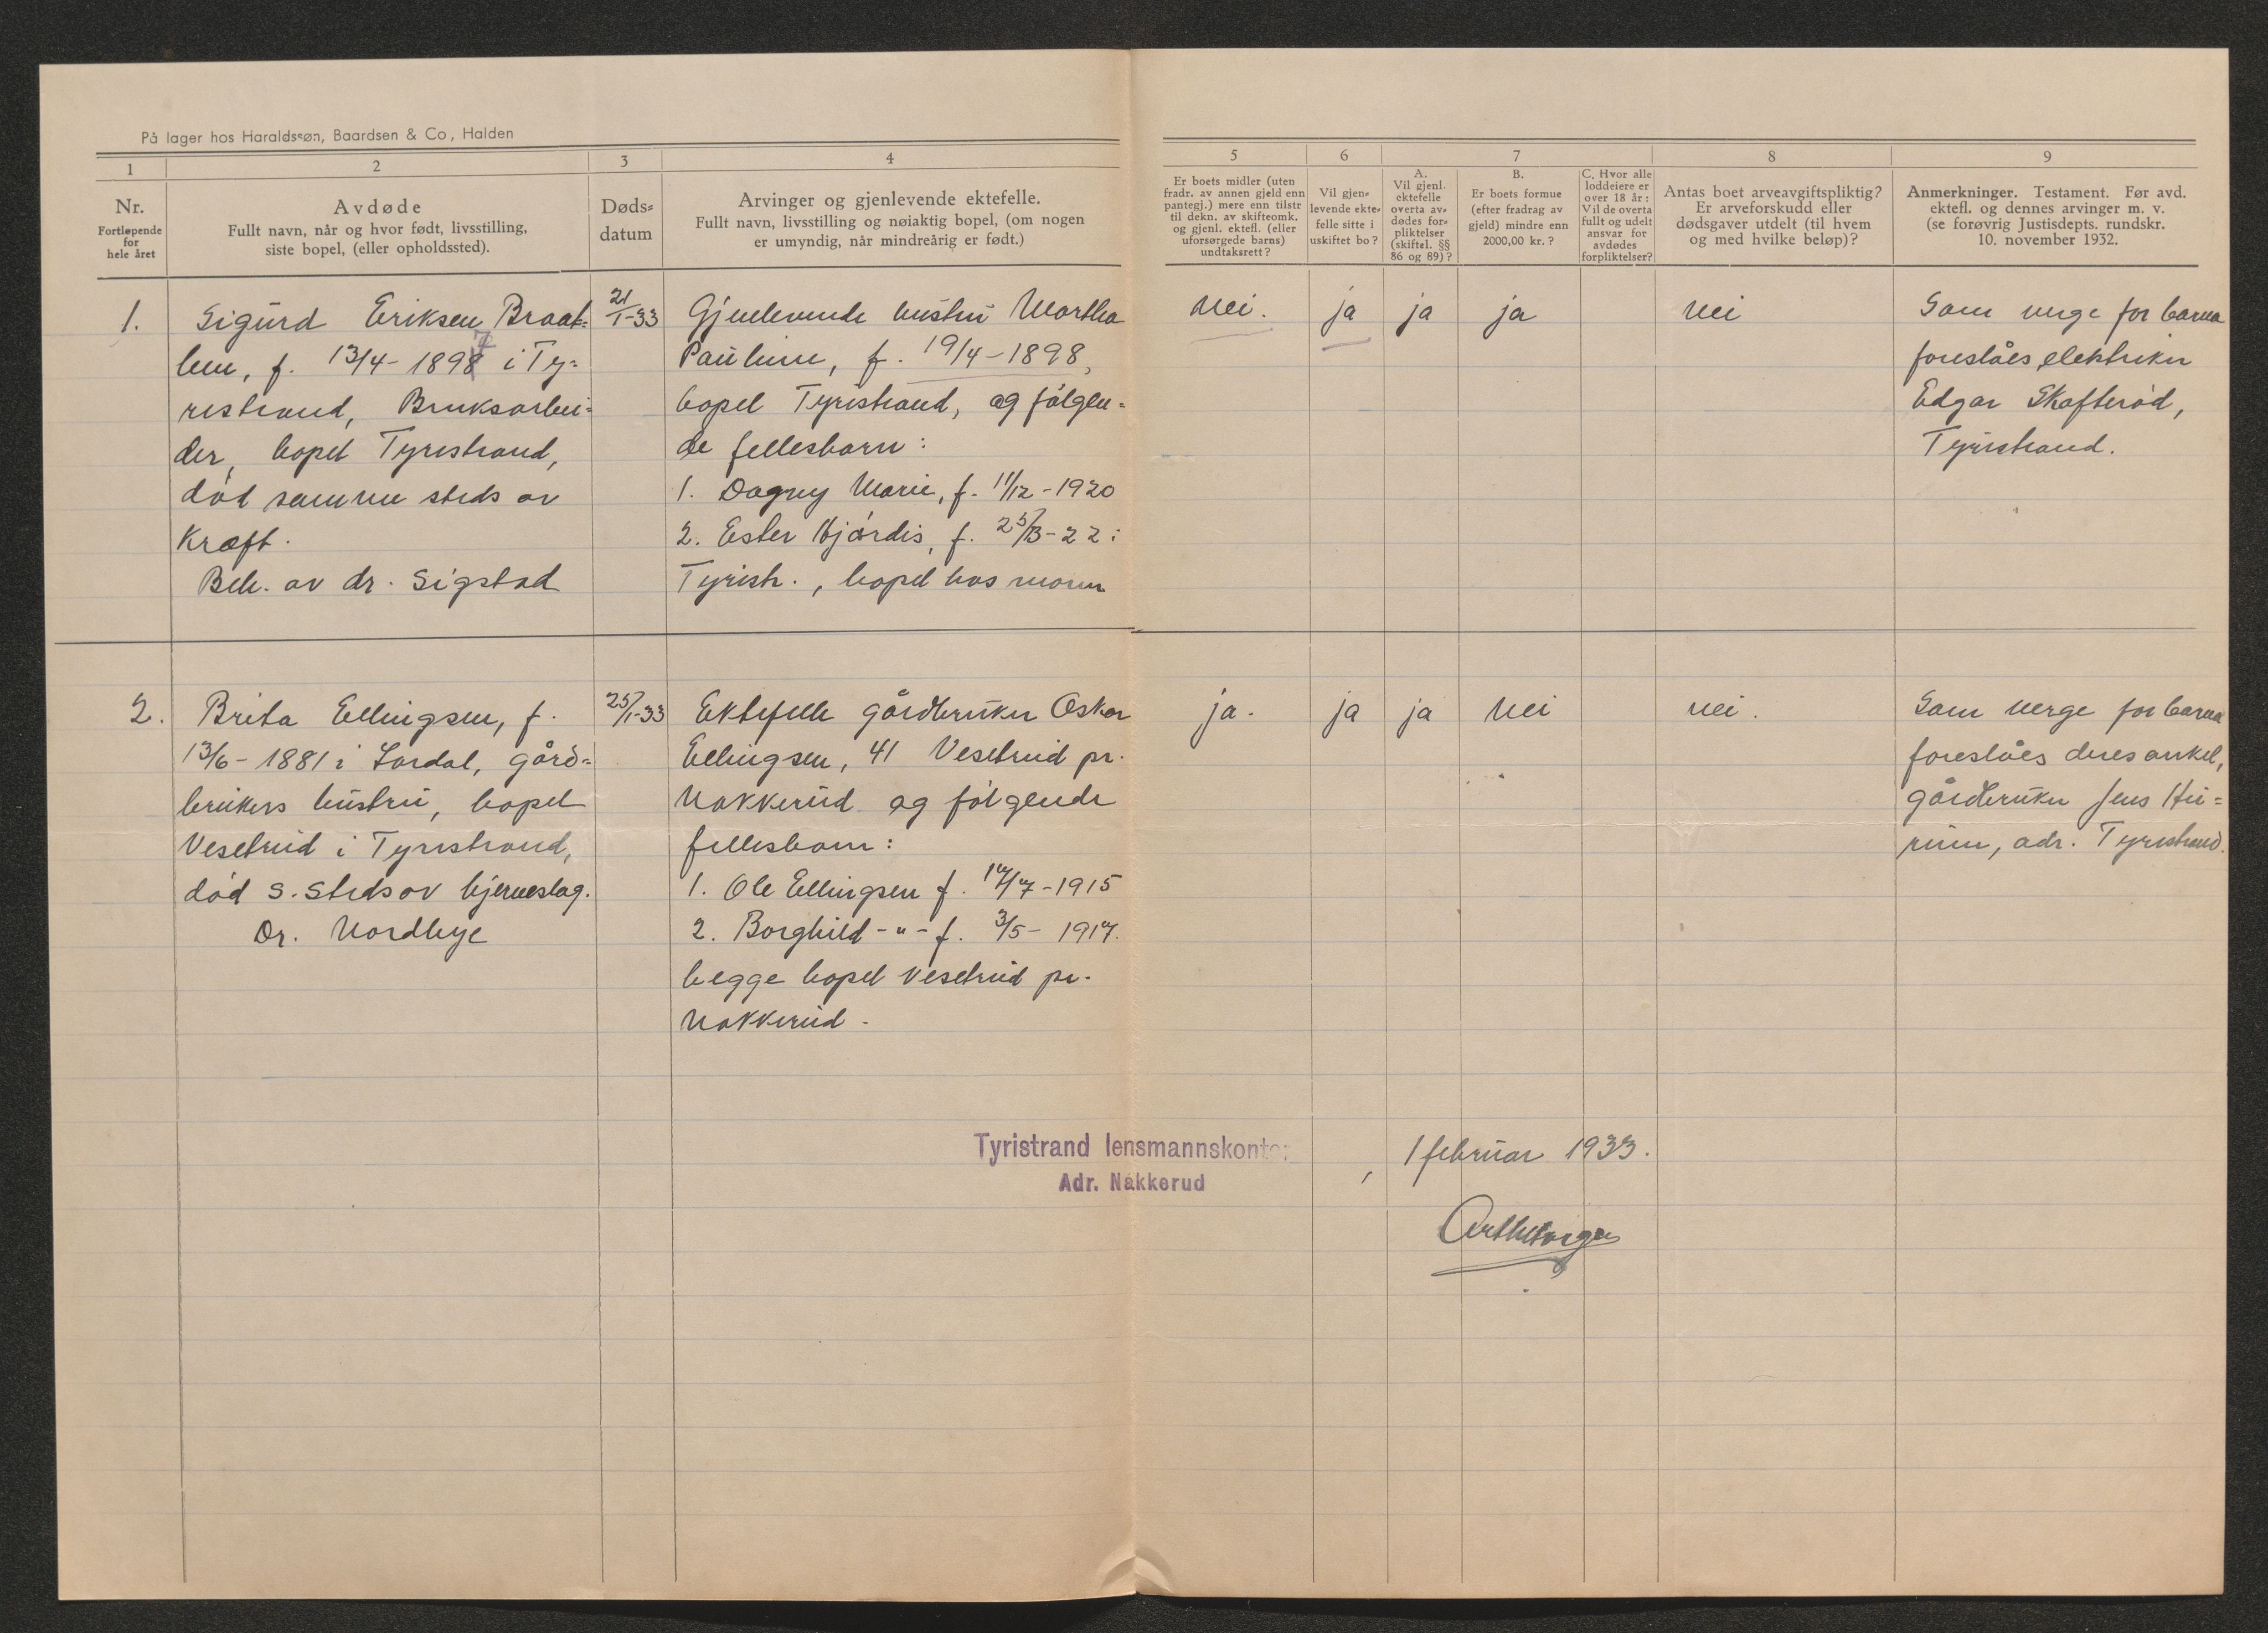 På lager hos Haraldssøn, Baardsen & Co, Halden
1
2
3
4
5
6
7
8
9
Nr.
Fortløpende
for
hele året
Avdøde
Fullt navn, når og hvor født, livsstilling,
siste bopel, (eller opholdssted).
Døds-
datum
Arvinger og gjenlevende ektefelle.
Fullt navn, livsstilling og nøiaktig bopel, (om nogen
er umyndig, når mindreårig er født.)
Er boets midler (uten
fradr. av annen gjeld enn
pantegj.) mere enn tilstr
til dekn. av skifteomk.
og gjenl. ektefl. (eller
uforsørgede barns)
undtaksrett?
Vil gjen-
levende ekte-
felle sitte i
uskiftet bo?
A.
Vil gjenl.
ektefelle
overta av-
dødes for-
pliktelser
(skiftel. §§
86 og 89)?
B.
Er boets formue
(efter fradrag av
gjeld) mindre enn
2000,00 kr.?
C. Hvor alle
loddeiere er
over 18 år:
Vil de overta
fullt og udelt
ansvar for
avdødes
forpliktelser?
Antas boet arveavgiftspliktig?
Er arveforskudd eller
dødsgaver utdelt (til hvem
og med hvilke beløp)?
Anmerkninger. Testament. Før avd.
ektefl. og dennes arvinger m. v.
(se forøvrig Justisdepts. rundskr.
10. november 1932.
1.
Sigurd Eriksen Braat-
hen, f. 13/4-1898 i Ty-
ristrand, Bruksarbei-
der, bopel Tyristrand,
død samme steds av
Kræft.
Beh. av dr. Sigstad
21/1-33
Gjenlevende hustru Martha
Pauline, f. 19/4-1898,
bopel Tyristrand, og følgen-
de fellesbarn:
1. Dagny Marie, f. 11/12-1920
2. Ester Hjørdis, f. 25/3-22 i
Tyristr., bopel hos moren
nei.
ja
ja
ja
nei
Som verge for barna
foreslåes elektriker
Edgar Skafterød,
Tyristrand.
2.
Brita Ellingsen, f.
13/6-1881 i Lardal, gård-
brukers hustru, bopel
Vesetrud i Tyristrand,
død s. steds av hjerneslag.
Dr. Nordbye
25/1-33
Ektefelle gårdbruker Oskar
Ellingsen, 41 Vesetrud pr.
Nakkerud og følgende
fellesbarn:
1. Ole Ellingsen f. 17/7-1915
2. Borghild -"- f. 3/5-1917.
begge bopel Vesetrud pr.
Nakkerud.
ja.
ja
ja
nei
nei.
Som verge for barna
foreslåes deres onkel,
gårdbruker Jens Hu-
rum, adr. Tyristrand.
Tyristrand lensmannskontor
Adr. Nakkerud
, 1 februar 1933.